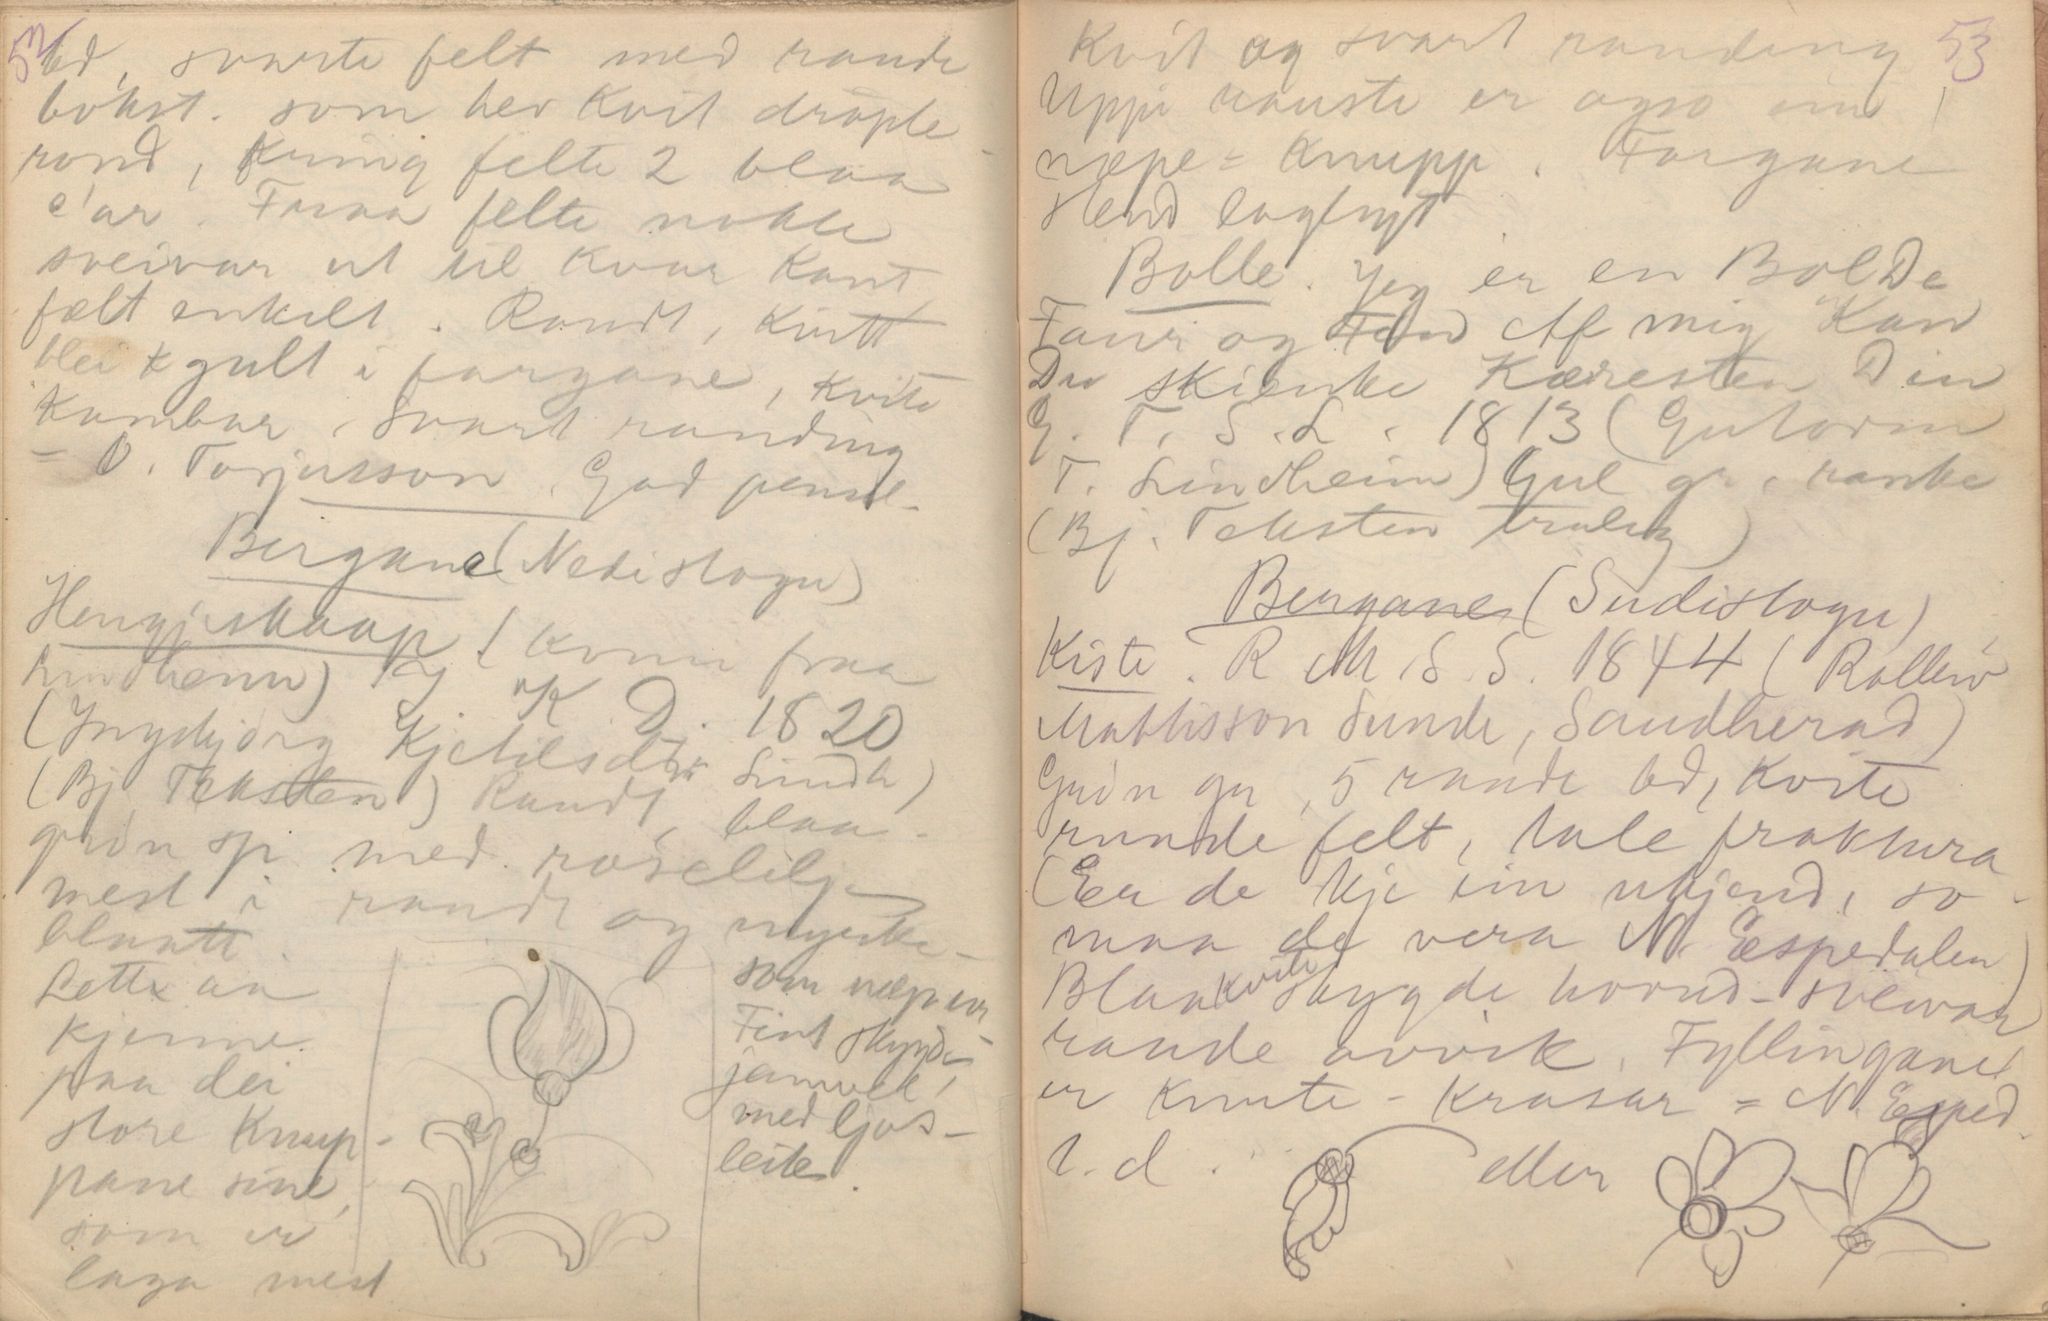 52
bd, svarte felt med raude
bokst. som hev kvit dråple-
rond, kring felte 2 blaa
c'ar. Fraa felte nokle
sveivar ut til kvar kant
fælt enkelt. Raudt, kvitt
blei & gult i fargane, kvite
kumbar, svart randing
= O. Torjusson. God pensel.
Bergane (Nedistogu)
Hengjeskaap (Komi fraa
Lindheim) Kj K D. 1820
(Ingebjörg Kjetilsdtr. Lindh)
(Bj Teksten) Raudt, blaa-
grön sp. med roselilja
mest i raudt og
blaatt.
Lett aa
kjenne
paa dei
store Knup-
pane sine,
som er
laga mest
som næpur
Fint skygde
jamvel,
med ljos-
leite.
53
Kvit og svart randing
Uppi rauste er ogso ein
næpe-Knupp. Fargane
stend lagligt
Bolle. Jeg er en Bolde
Faur og Fand Af mig Kan
Du skienke Kæresten Din
G. T. S. L. 1813 (Gutorm
T. Lindheim) Gul gr. ranke
(Bj. Teksten truleg)
Bergane (Sudistogu)
Kiste. R M S. S. 1844 (Rolleiv
Mathisson Sunde, Saudherad)
Grön gr, 5 raude bd, kvite
runde felt, tale fraktura
(Er de kje ein ukjend, so
maa de vera N. Espedalen)
Blaa kvite skygde hovud-sveivar
raude avvik. Fyllingane
er Knute-Krasar = N. Esped.
t. d. eller